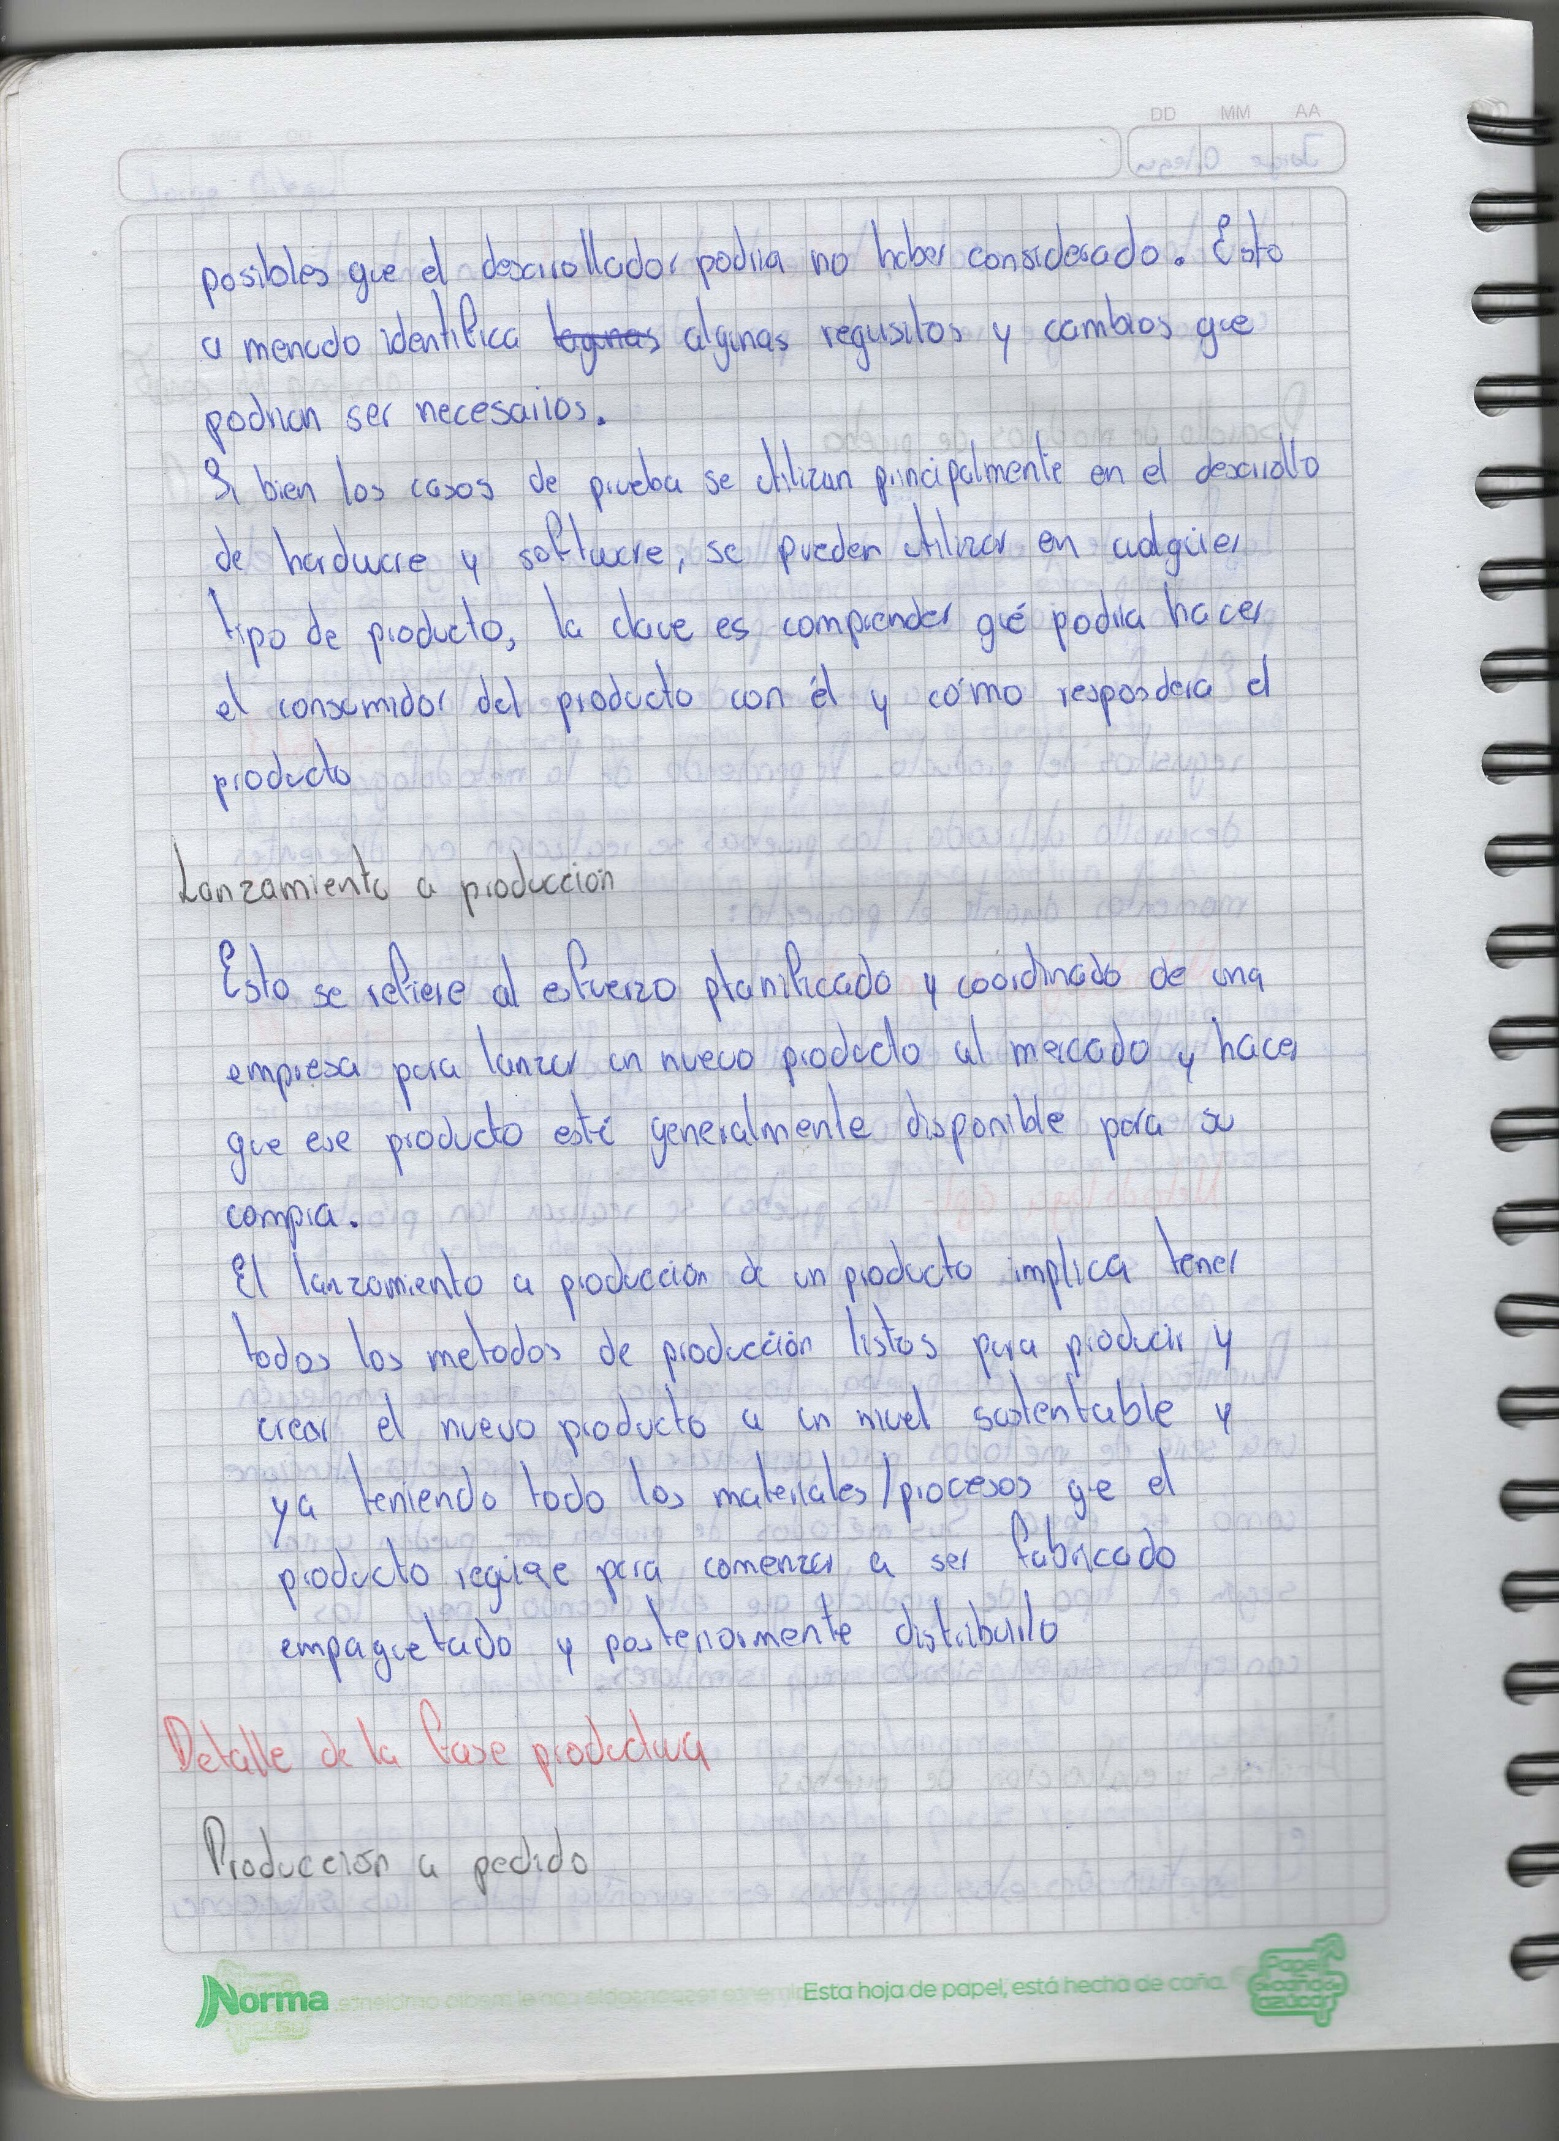 DD MM AA
posibles que el desarrollador podria no haber considerado. Esto
a menudo identifica lagunas algunas requisitos y cambios que
podrian ser necesarios.
Si bien los casos de prueba se utilizan principalmente en el desarrollo
de hardware y software, se pueden utilizar en cualquier
tipo de producto, la clave es comprender qué podria hacer
el consumidor del producto con él y cómo respondera el
producto
Lanzamiento a producción
Esto se refiere al esfuerzo planificado y coordinado de una
empresa para lanzar un nuevo producto al mercado y hacer
que ese producto esté generalmente disponible para su
compra.
El lanzamiento a producción de un producto implica tener
todos los metodos de producción listos para producir y
crear el nuevo producto a un nivel sustentable y
ya teniendo todo los materiales/procesos que el
producto requiere para comenzar a ser fabricado
empaquetado y posteriormente distribuirlo
Detalle de la fase productiva
Producción a pedido
Norma Esta hoja de papel, está hecha de caña. Papel ecoande azúcar